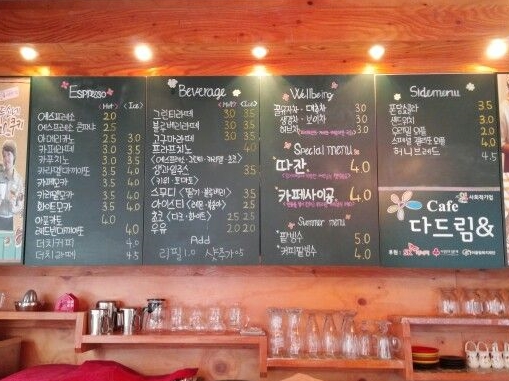 Espresso
<Hot> <Ice>
에스프레소 2.0
에스프레소 콘파냐 2.5
아메리카노 2.5 3.0
카페라떼 3.0 3.5
카푸치노 3.0 3.5
카라멜마끼아또 3.5 4.0
카페모카 3.5 4.0
카라멜모카 3.5 4.0
화이트모카 3.5 4.0
아포카토 4.0
레드빈마끼아또 4.0
더치커피 4.0
더치라떼 4.5
Beverage
<Hot> <Ice>
그린티라떼 3.0 3.5
블루베리라떼 3.0 3.5
고구마라떼 3.0 3.5
프라프치노 4.0
생과일주스 3.5
<키위·토마토>
스무디 <딸기·블루베리> 3.5
아이스티 <레몬·복숭아> 2.5
초코 <다크·화이트> 2.5 2.5
우유 2.0 2.0
Add
리필 1.0 샷추가 0.5
Wellbeing
유자차 · 대추차 3.0
생강차 · 모과차 3.0
허브차 3.0
Special menu
따잔 4.0
카페사이공 4.0
Summer menu
*팥빙수 5.0
*커피팥빙수 4.0
Sidemenu
3.5
샌드위치 3.0
와플 2.0
와플 4.0
허니브레드 4.5
사회적기업
Cafe
다드림&
후원: